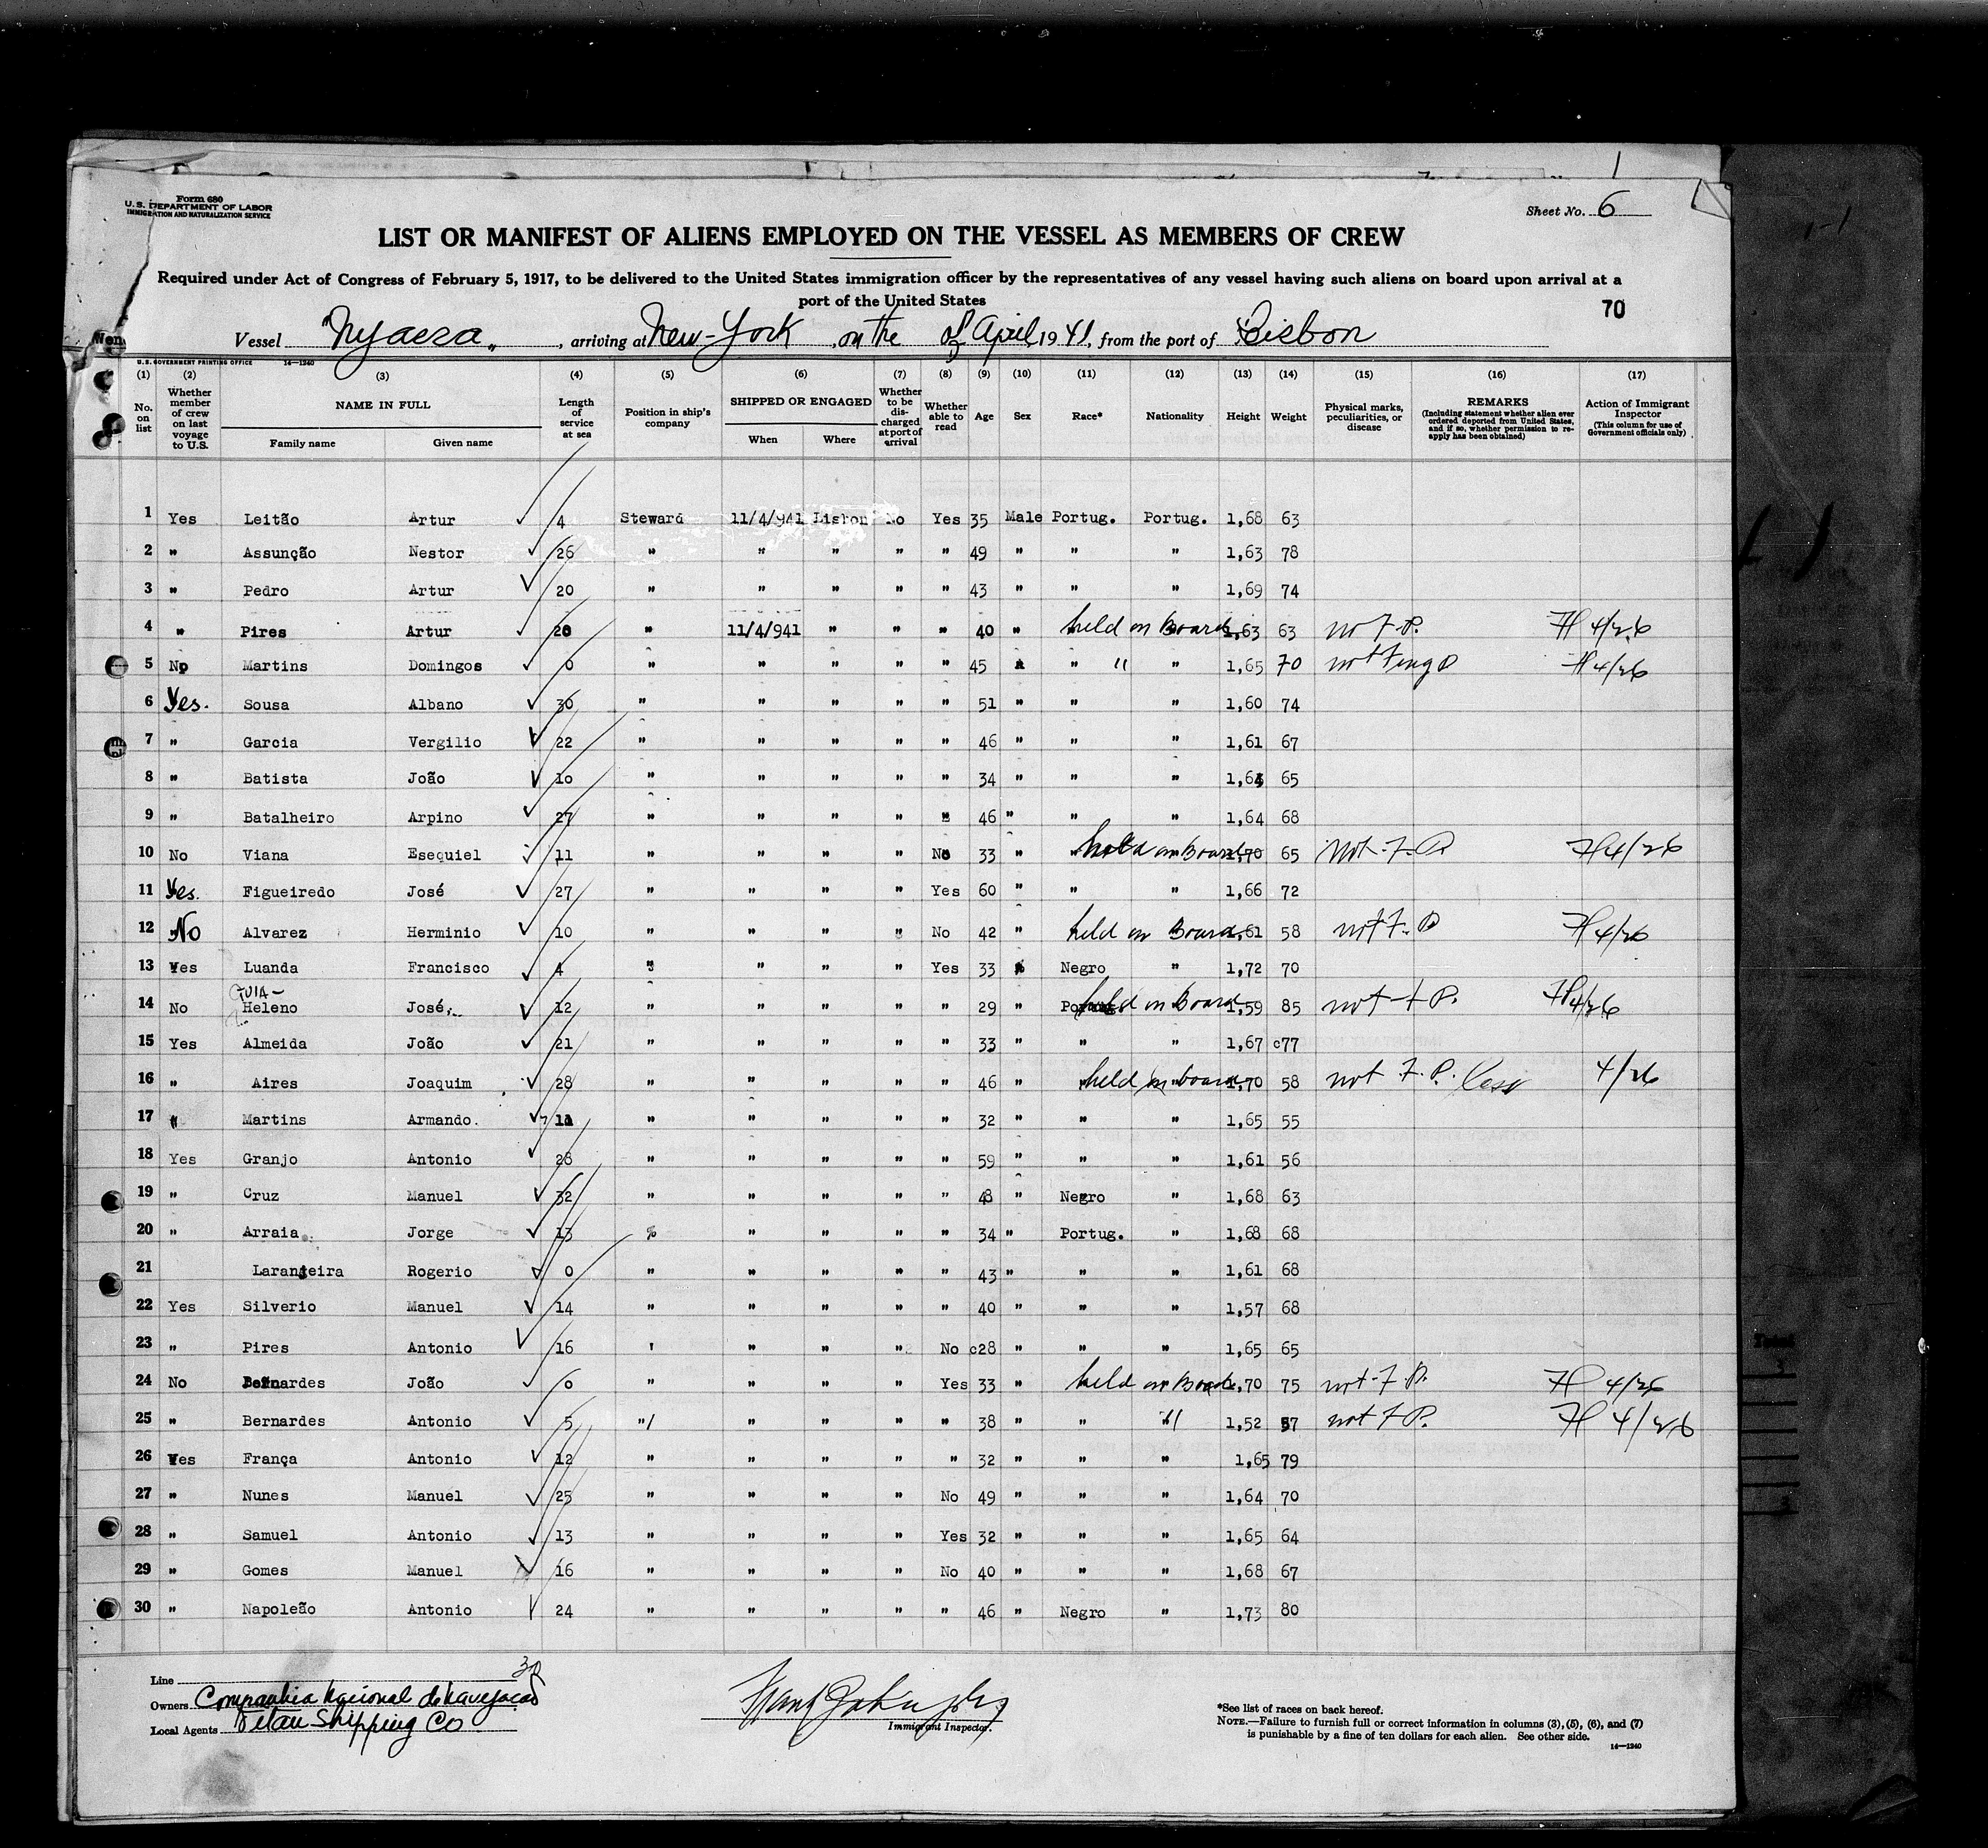 Form 680
U. S. DEPARTMENT OF LABOR
IMMIGRATION AND NATURALIZATION SERVICE
Sheet No. 6
LIST OR MANIFEST OF ALIENS EMPLOYED ON THE VESSEL AS MEMBERS OF CREW
Required under Act of Congress of February 5, 1917, to be delivered to the United States immigration officer by the representatives of any vessel having such aliens on board upon arrival at a
port of the United States
70
Vessel "Nyassa", arriving at New-York, on the of April, 1941, from the port of Lisbon
U. S. GOVERNMENT PRINTING OFFICE 14—1240
(1) (2) (3) (4) (5) (6) (7) (8) (9) (10) (11) (12) (13) (14) (15) (16) (17)
No. on list
Whether member of crew on last voyage to U.S.
NAME IN FULL
Family name
Given name
Length of service at sea
Position in ship's company
SHIPPED OR ENGAGED
When
Where
Whether to be discharged at port of arrival
Whether able to read
Age
Sex
Race*
Nationality
Height
Weight
Physical marks, peculiarities, or disease
REMARKS
(Including statement whether alien ever ordered deported from United States, and if so, whether permission to reapply has been obtained)
Action of Immigrant Inspector
(This column for use of Government officials only)
1 Yes Leitão Artur 4 Steward 11/4/941 Lisbon No Yes 35 Male Portug. Portug. 1,68 63
2 " Assunção Nestor 26 " " " " " 49 " " " 1,63 78
3 " Pedro Artur 20 " " " " " 43 " " " 1,69 74
4 " Pires Artur 20 " 11/4/941 " " " 40 " held on Board 1,63 63 not F.P. H 4/26
5 No Martins Domingos 0 " " " " " 45 " " " 1,65 70 not Fing P H 4/26
6 Yes. Sousa Albano 30 " " " " " 51 " " " 1,60 74
7 " Garcia Vergilio 22 " " " " " 46 " " " 1,61 67
8 " Batista João 10 " " " " " 34 " " " 1,64 65
9 " Batalheiro Arpino 27 " " " " " 46 " " " 1,64 68
10 No Viana Esequiel 11 " " " " No 33 " held on Board 1,70 65 Not F.P. H 4/26
11 Yes. Figueiredo José 27 " " " " Yes 60 " " " 1,66 72
12 No Alvarez Herminio 10 " " " " No 42 " held on Board 1,61 58 not F.P H 4/26
13 Yes Luanda Francisco 4 " " " " Yes 33 " Negro " 1,72 70
14 No Heleno José 12 " " " " " 29 " held on Board 1,59 85 not F P. H 4/26
15 Yes Almeida João 21 " " " " " 33 " " " 1,67 77
16 " Aires Joaquim 28 " " " " " 46 " held on board 1,70 58 not F.P. 4/26
17 " Martins Armando. 11 " " " " " 32 " " " 1,65 55
18 Yes Granjo Antonio 28 " " " " " 59 " " " 1,61 56
19 " Cruz Manuel 32 " " " " " 48 " Negro " 1,68 63
20 " Arraia Jorge 13 " " " " 34 " Portug. " 1,68 68
21 Laranjeira Rogerio 0 " " " " " 43 " " " 1,61 68
22 Yes Silverio Manuel 14 " " " " " 40 " " " 1,57 68
23 " Pires Antonio 16 " " " " No 28 " " " 1,65 65
24 No Bernardes João 0 " " " " Yes 33 " held on Board 1,70 75 not F.P. H 4/26
25 " Bernardes Antonio 5 " " " " " 38 " " " 1,52 57 not F P. H 4/26
26 Yes França Antonio 12 " " " " " 32 " " " 1,65 79
27 " Nunes Manuel 25 " " " " No 49 " " " 1,64 70
28 " Samuel Antonio 13 " " " " Yes 32 " " " 1,65 64
29 " Gomes Manuel 16 " " " " No 40 " " " 1,68 67
30 " Napoleão Antonio 24 " " " " " 46 " Negro " 1,73 80
Line
Owners Companhia Nacional de Navegação
Local Agents Shipping Co
Immigrant Inspector.
*See list of races on back hereof.
NOTE.—Failure to furnish full or correct information in columns (3), (5), (6), and (7)
is punishable by a fine of ten dollars for each alien. See other side.
14—1240